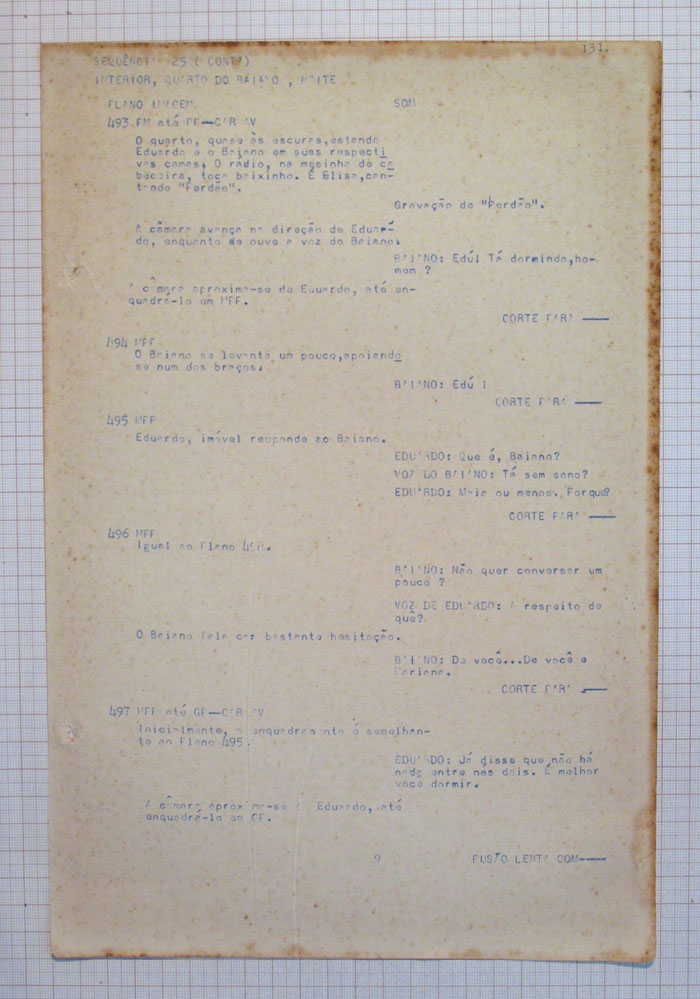 131.
SEQUÊNCIA 25 (CONT.)
INTERIOR, QUARTO DO BAIANO, NOITE
PLANO IMAGEM
SOM
493 PM até PP—CAR AV
O quarto, quase às escuras,estando
Eduardo e o Baiano em suas respecti
vas camas. O rádio, na mesinha de ca
beceira, toca baixinho. É Elisa,can-
tando "Perdão".
Gravação de "Perdão".
A câmara avança na direção de Eduar-
do, enquanto se ouve a voz do Baiano.
BAIANO: Edú! Tá dormindo,ho-
mem ?
A câmara aproxima-se de Eduardo, até en-
quadrá-lo em MPP.
CORTE PARA ——
494 MPP
O Baiano se levanta um pouco,apoiando
se num dos braços.
BAIANO: Edú !
CORTE PARA ——
495 MPP
Eduardo, imóvel responde ao Baiano.
EDUARDO: Que é, Baiano?
VOZ DO BAIANO: Tá sem sono?
EDUARDO: Meio ou menos. Porque?
CORTE PARA ——
496 MPP
Igual ao Plano
BAIANO: Não quer conversar um
pouco ?
VOZ DE EDUARDO: A respeito de
quê?
O Baiano fala com bastante hesitação.
BAIANO: De você...De você e
Mariana.
CORTE PARA ——
497 MPP até GP—CAR AV
Inicialmente, o enquadramento é semelhan-
te ao Plano 495.
EDUARDO: Já disse que não há
nada entre nos dois. É melhor
voce dormir.
A câmara aproxima-se de Eduardo, até
enquadrá-lo em GP.
9
FUSÃO LENTA COM——